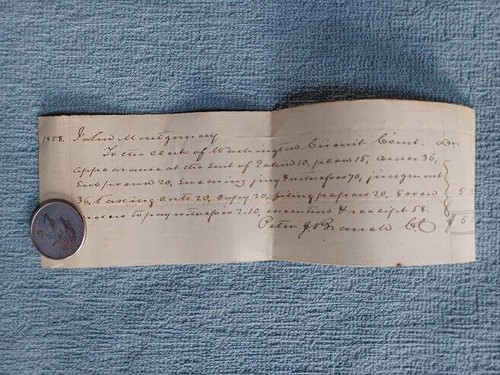 1858. John Montgomery
To the clerk of Washington Circuit Court. Dr.
appearance at the suit of 10, plea 15, 36,
Subpoena 20, Swearing jury & witnesses 70, judgment
36, taxing costs 20, copy 20, filing papers 20,
orders to pay witnesses 2.10, execution & receipt 58.
Peter J Branch